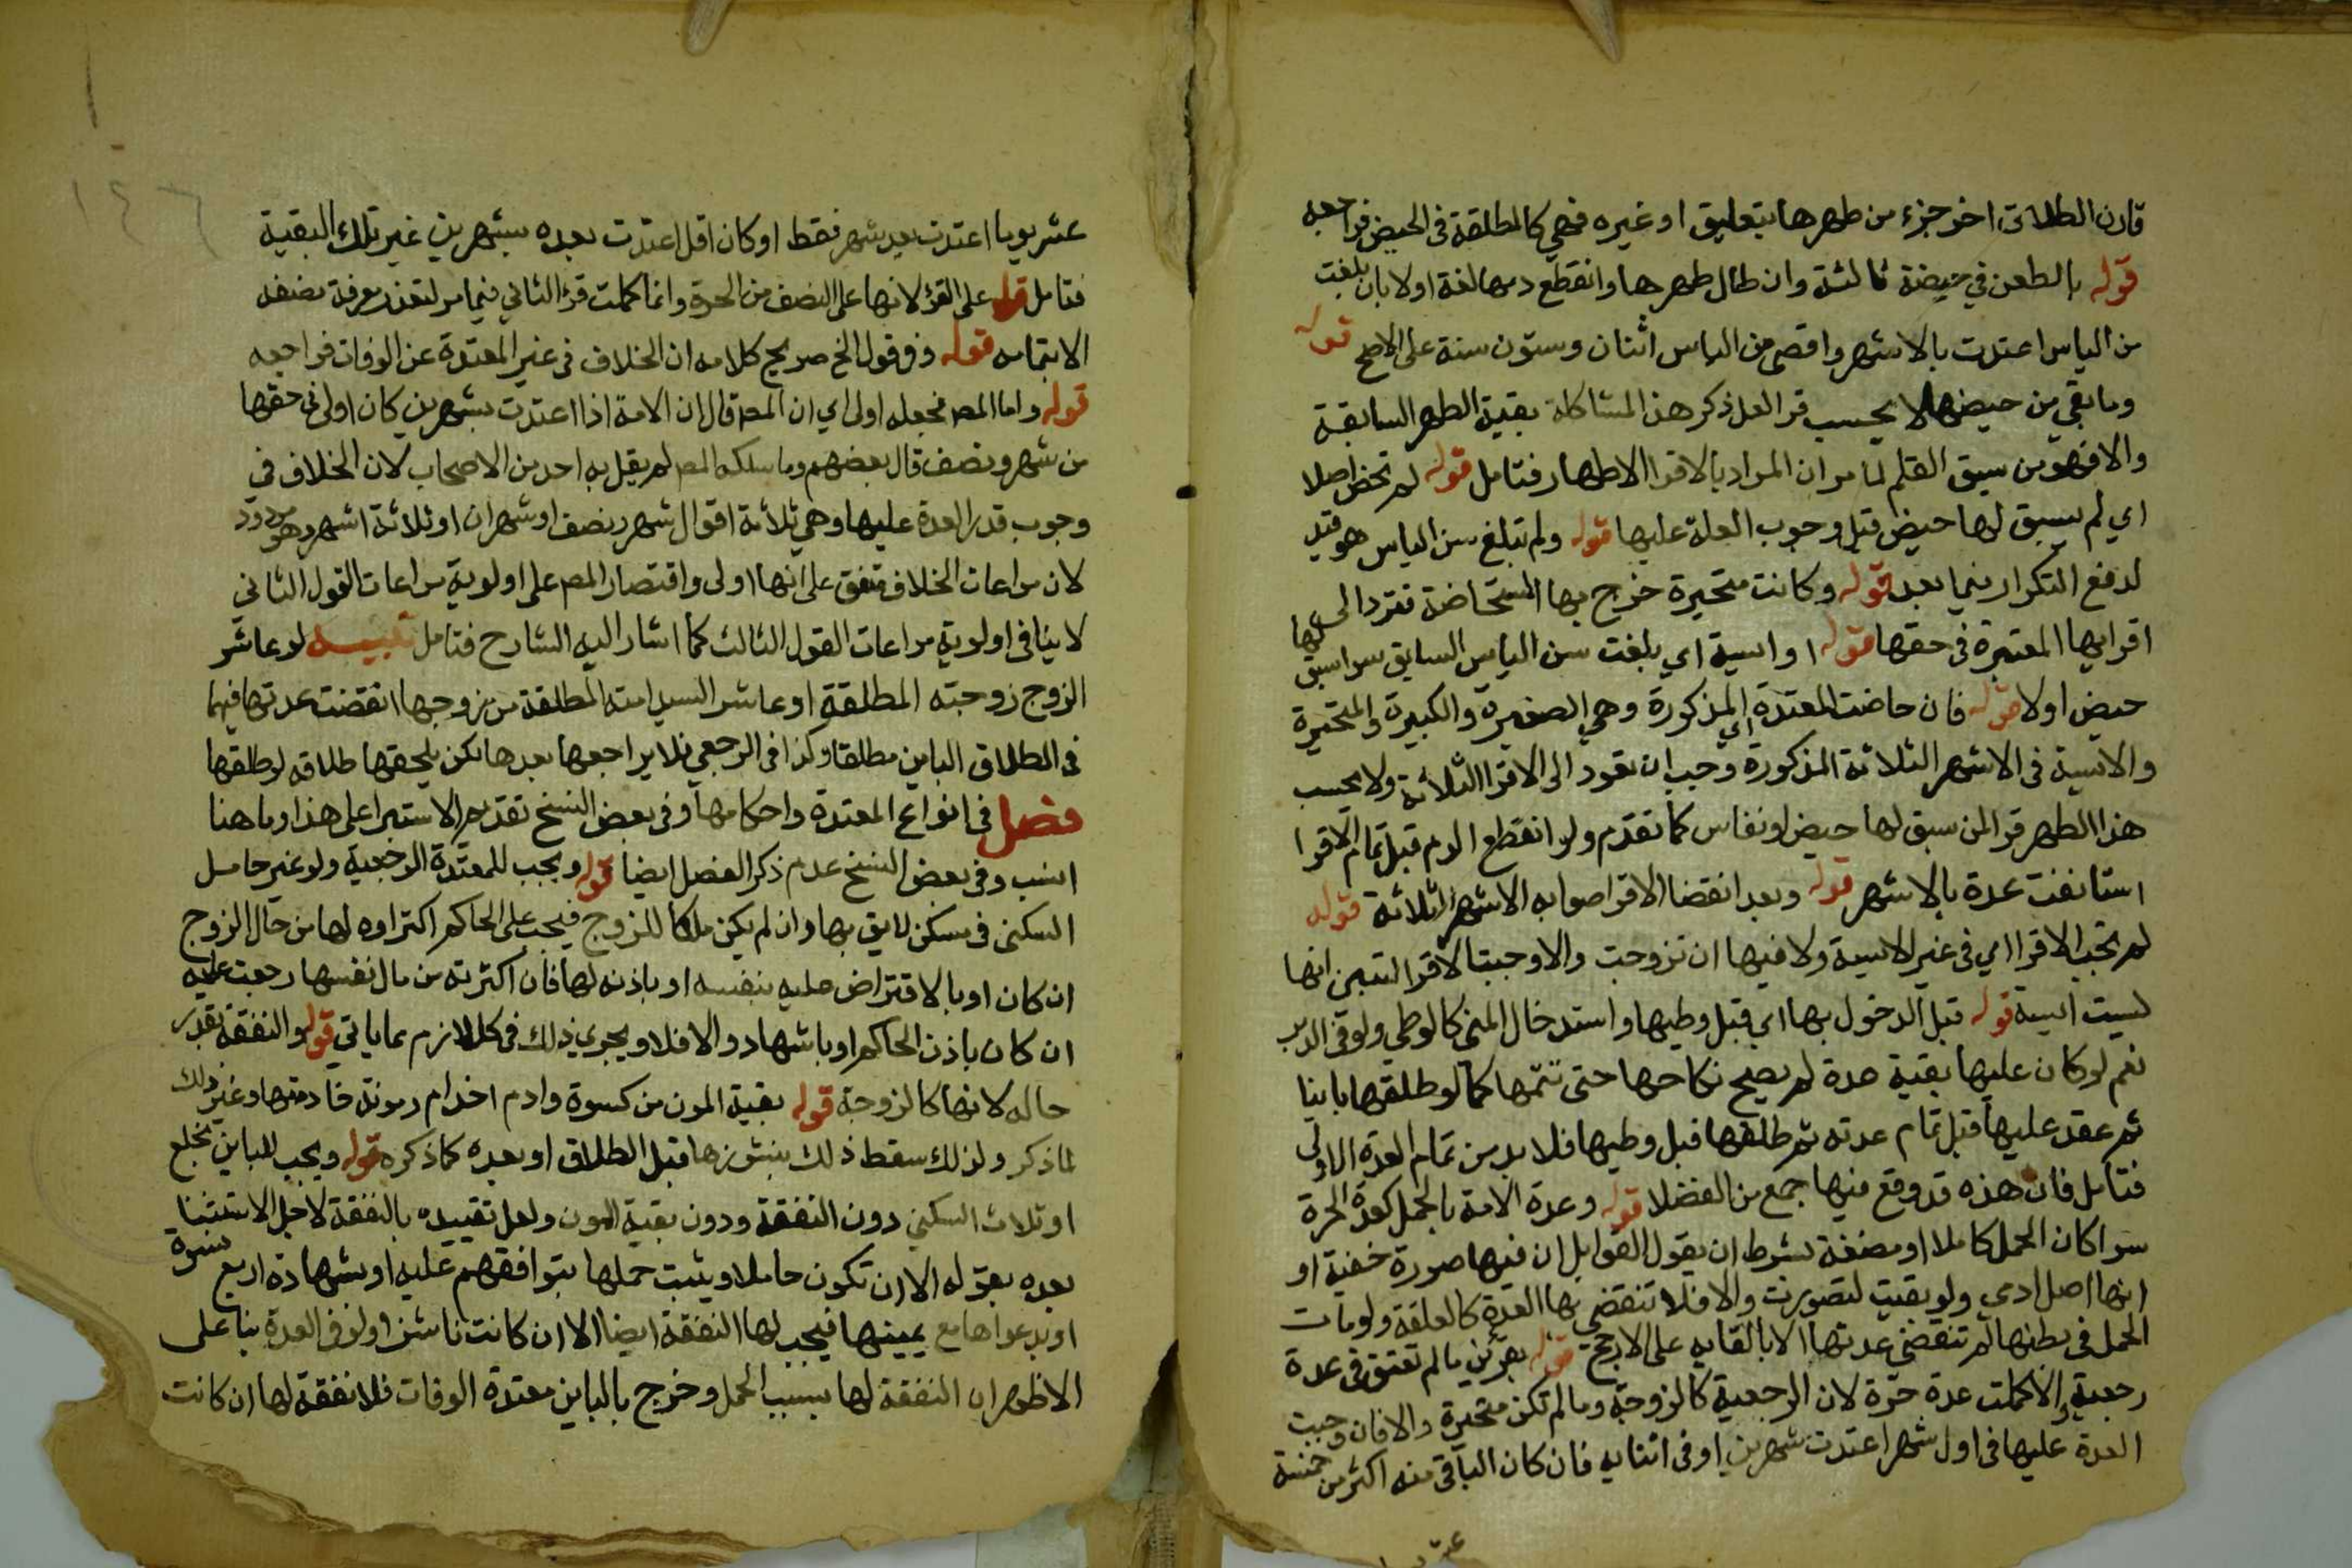 قارن الطلاق اخر جزء من طهرها بتعليق او غيره فهي كالمطلقة في الحيض فراجعه
قوله بالطعن في حيضة ثالثة وان طال طهرها وانقطع دمها لغة اولا بان بلغت
سن الياس اعتدت بالاشهر واقصى من الياس اثنان وستون سنة على الاصح قوله
وما بقي من حيضها لا يحسب قرا لعل ذكر هذا لمشاكلة بقية الطهر السابقة
والا فهو من سبق القلم لما مر ان المراد بالاقرا الاطهار فتامل قوله لم تحض اصلا
اي لم يسبق لها حيض قبل وجوب العدة عليها قوله ولم تبلغ سن الياس هو قيد
لدفع التكرار فيما بعد قوله وكانت متحيرة خرج بها المستحاضة فترد الى
اقرايها المعتبرة في حقها قوله او ايسة اي بلغت سن الياس السابق سوا سبق لها
حيض اولا قوله فان حاضت المعتدة اي المذكورة وهي الصغيرة والكبيرة والمتحيرة
والايسة في الاشهر الثلاثة المذكورة وجب ان تعود الى الاقرا الثلاثة ولا يحسب
هذا الطهر قرا لمن سبق لها حيض او نفاس كما تقدم ولو انقطع الدم قبل تمام الاقرا
استانفت عدة بالاشهر قوله وبعد انقضا الاقرا صوابه الاشهر الثلاثة قوله
لم تجب الاقرا اي في غير الايسة ولا فيها ان تزوجت والا وجبت الاقرا لتبين انها
ليست ايسة قوله قبل الدخول بها اي قبل وطيها واستدخال المني كالوطي ولو في الدبر
نعم لو كان عليها بقية عدة لم يصح نكاحها حتى تتمها كما لو طلقها باينا
ثم عقد عليها قبل تمام عدته ثم طلقها قبل وطيها فلا بد من تمام العدة الاولى
فتامل فان هذه قد وقع فيها جمع من الفضلا قوله وعدة الامة بالحمل كعدة الحرة
سوا كان الحمل كاملا او مضغة بشرط ان يقول القوابل ان فيها صورة خفية او
انها اصل ادمي ولو بقيت لتصورت والا فلا تنقضي بها العدة كالعلقة ولو مات
الحمل في بطنها لم تنقضي عدتها الا بالقايه على الارجح قوله بقرئين ما لم تعتق في عدة
رجعية والا كملت عدة حرة لان الرجعية كالزوجة وما لم تكن متحيرة والا فان وجبت
العدة عليها في اول شهر اعتدت شهرين او في اثنايه فان كان الباقي منه اكثر من خمسة
عشر يوما اعتدت بعد شهر فقط او كان اقل اعتدت بعده بشهرين غير تلك البقية
فتامل قوله على القرؤ لانها على النصف من الحرة وانما كملت قرؤ الثاني فيما مر لتعذر معرفة نصفه
الا بتمامه قوله وفي قول الخ صريح كلامه ان الخلاف في غير المعتدة عن الوفات فراجعه
قوله واما المص فجعله اولى اي ان المص قال ان الامة اذا اعتدت بشهرين كان اولى في حقها
من شهر ونصف قال بعضهم وما سلكه المص لم يقل به احد من الاصحاب لان الخلاف في
وجوب قدر العدة عليها وهي ثلاثة اقوال شهر ونصف او شهران او ثلاثة اشهر وهو مردود
لان مراعات الخلاف متفق على انها اولى واقتصار المص على اولوية مراعات القول الثاني
لا ينافي اولوية مراعات القول الثالث كما اشار اليه الشارح فتامل تنبيه لو عاشر
الزوج زوجته المطلقة او عاشر السيد امته المطلقة من زوجها انقضت عدتها فيهما
في الطلاق الباين مطلقا وكذا في الرجعي فلا يراجعها بعدها لكن يلحقها طلاقه لو طلقها
فصل في انواع المعتدة واحكامها وفي بعض النسخ تقديم الاستبرا على هذا وما هنا
انسب وفي بعض النسخ عدم ذكر الفصل ايضا قوله ويجب للمعتدة الرجعية ولو غير حامل
السكنى في مسكن لايق بها وان لم يكن ملكا للزوج فيجب على الحاكم اكتراوه لها من مال الزوج
ان كان او بالاقتراض عليه بنفسه او باذنه لها فان اكترته من مال نفسها رجعت عليه
ان كان باذن الحاكم او باشهاد والا فلا ويجري ذلك في كل لازم مما ياتي قوله والنفقة بقدر
حاله لانها كالزوجة قوله بقية المون من كسوة وادم اخدام ومونة خادمتها وغير ذلك
لما ذكر ولذلك سقط ذلك بنشوزها قبل الطلاق او بعده كما ذكره قوله ويجب للباين بخلع
او ثلاث السكنى دون النفقة ودون بقية المون ولعل تقييده بالنفقة لاجل الاستثنا
بعده بقوله الا ان تكون حاملا ويثبت حملها بتوافقهم عليه او بشهادة اربع نسوة
او بدعواها مع يمينها فيجب لها النفقة ايضا الا ان كانت ناشزا ولو في العدة بنا على
الاظهر ان النفقة لها بسبب الحمل وخرج بالباين معتدة الوفات فلا نفقة لها ان كانت